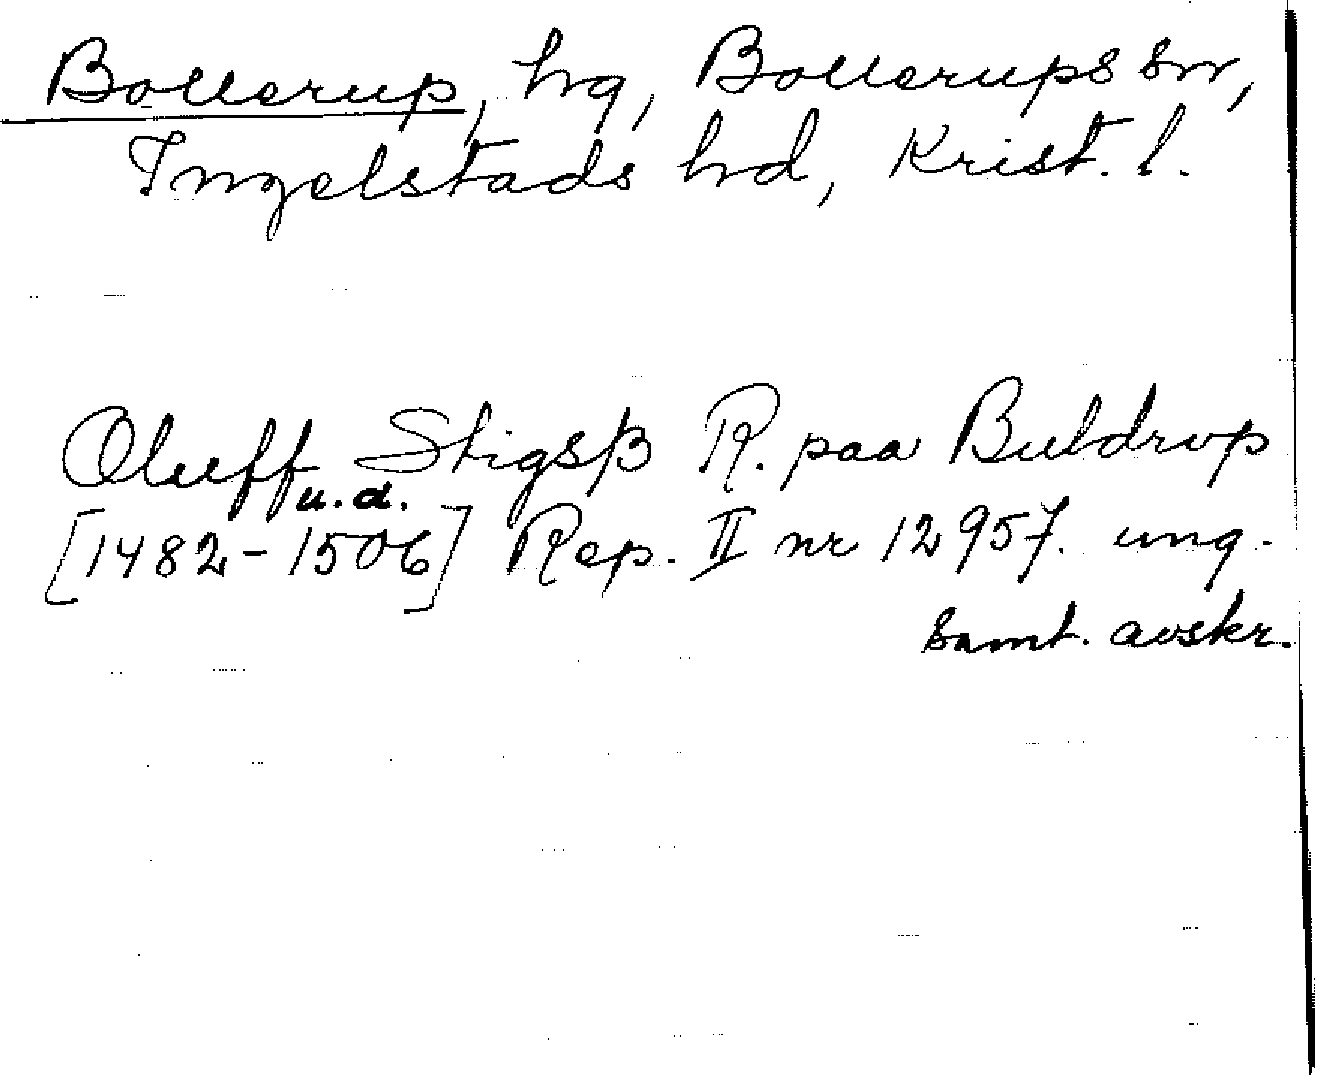 Bollerup, hg, Bollerups sn,
Ingelstads hd, Krist. l.
Oluff Stigsß R. paa Buldrup
u. d.
[1482-1506] Rep. II nr 12957. ung.
samt. avskr.